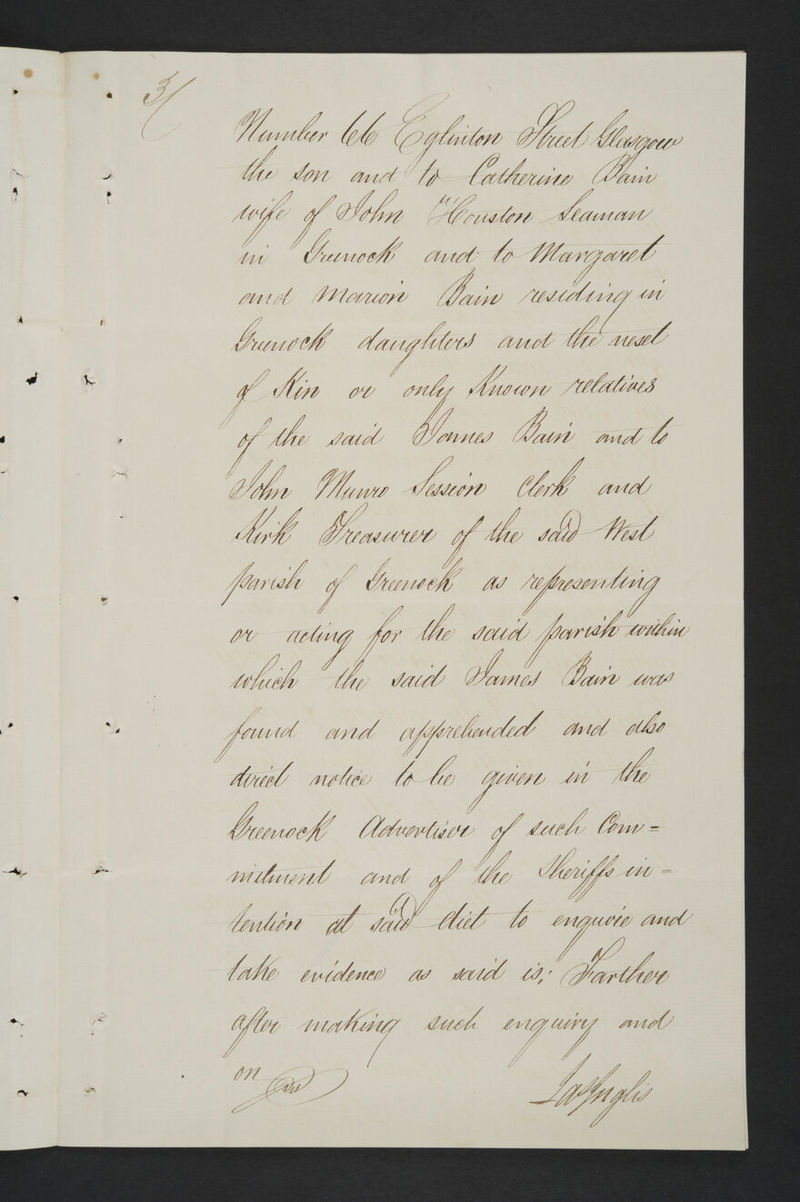 3/
Number 66 Eglinton Street Glasgow
the son and to Catherine Bain
wife of John Houston Seaman
in Greenock and to Margaret
and Marion Bain residing in
Greenock daughters and the next
of Kin or only Known relatives
of the said James Bain and to
John Munro Session Clerk and
Kirk Treasurer of the said West
parish of Greenock as representing
or acting for the said parish within
which the said James Bain was
found and apprehended and also
direct notice to be given in the
Greenock Advertiser of such Com=
mitment and of the Sheriffs in=
tention at said diet to enquire and
take evidence as said is; Farther
after making such enquiry and
on
Inglis